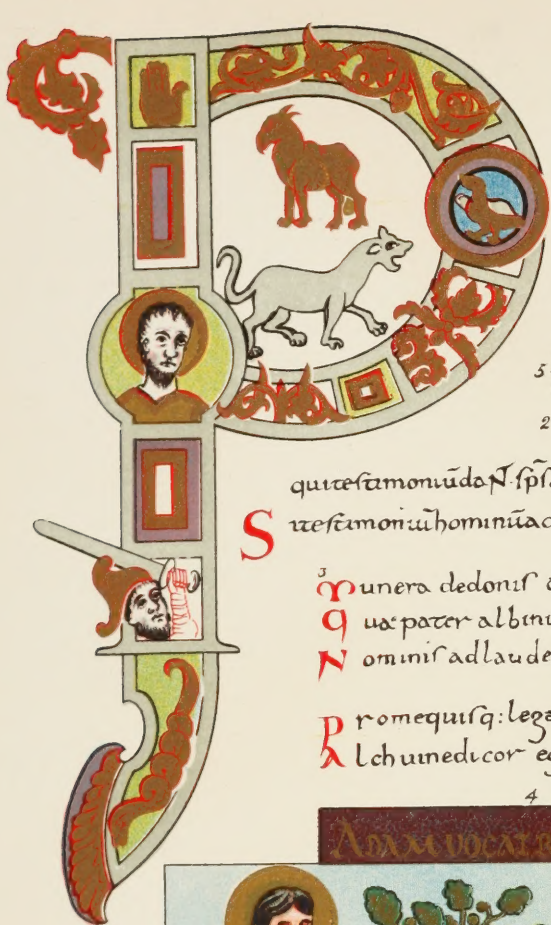 P
5
2
quitestimoniūdaN·sp̄s
Sitestimoniūhominūac
3
Munera dedonis
Quæ pater albinu
Nominis adlaude
Promequisq: lega
Alchuinedicor
4
ADAMVOCAT